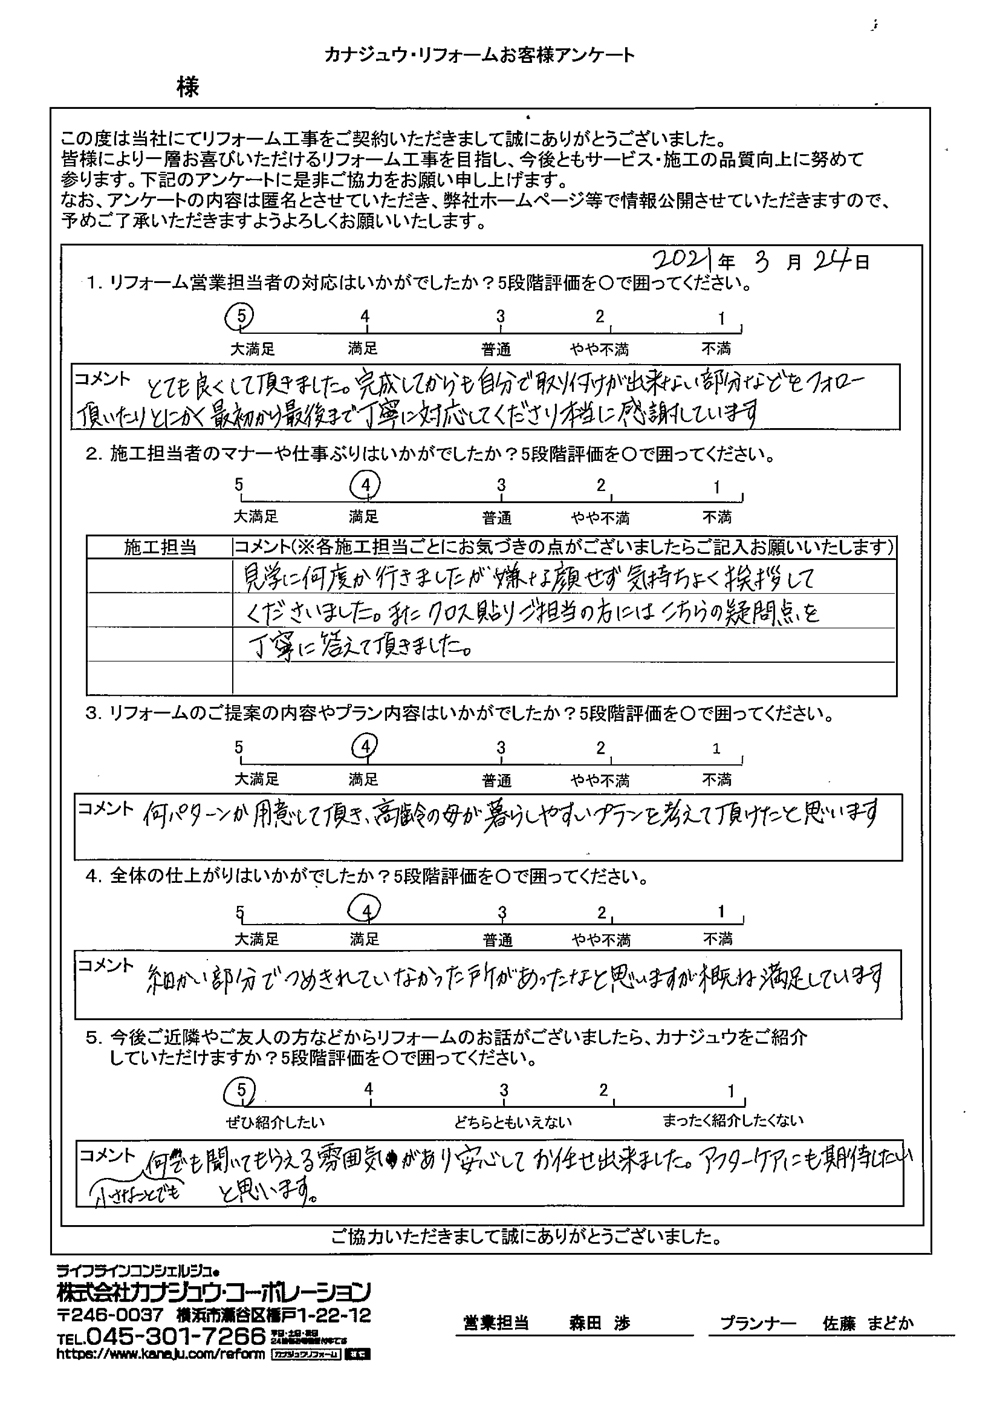 カナジュウ・リフォームお客様アンケート
様
この度は当社にてリフォーム工事をご契約いただきまして誠にありがとうございました。
皆様により一層お喜びいただけるリフォーム工事を目指し、今後ともサービス・施工の品質向上に努めて
参ります。下記のアンケートに是非ご協力をお願い申し上げます。
なお、アンケートの内容は匿名とさせていただき、弊社ホームページ等で情報公開させていただきますので、
予めご了承いただきますようよろしくお願いいたします。
2021年 3 月 24日
1. リフォーム営業担当者の対応はいかがでしたか？5段階評価を〇で囲ってください。
5 4 3 2 1
大満足 満足 普通 やや不満 不満
コメント とても良くして頂きました。完成してからも自分で取り付けが出来ない部分などをフォロー
頂いたりとにかく最初から最後まで丁寧に対応してくださり本当に感謝しています
2. 施工担当者のマナーや仕事ぶりはいかがでしたか？5段階評価を〇で囲ってください。
5 4 3 2 1
大満足 満足 普通 やや不満 不満
施工担当 コメント(※各施工担当ごとにお気づきの点がございましたらご記入お願いいたします)
見学に何度か行きましたが嫌な顔せず気持ちよく挨拶して
くださいました。またクロス貼りご担当の方にはこちらの疑問点を
丁寧に答えて頂きました。
3. リフォームのご提案の内容やプラン内容はいかがでしたか？5段階評価を〇で囲ってください。
5 4 3 2 1
大満足 満足 普通 やや不満 不満
コメント 何パターンか用意して頂き、高齢の母が暮らしやすいプランを考えて頂けたと思います
4. 全体の仕上がりはいかがでしたか？5段階評価を〇で囲ってください。
5 4 3 2 1
大満足 満足 普通 やや不満 不満
コメント 細かい部分でつめきれていなかった所があったなと思いますが概ね満足しています
5. 今後ご近隣やご友人の方などからリフォームのお話がございましたら、カナジュウをご紹介
していただけますか？5段階評価を〇で囲ってください。
5 4 3 2 1
ぜひ紹介したい どちらともいえない まったく紹介したくない
コメント 何でも聞いてもらえる雰囲気があり安心してお任せ出来ました。アフターケアにも期待したい
小さなことでも と思います。
ご協力いただきまして誠にありがとうございました。
ライフラインコンシェルジュ。
株式会社カナジュウ・コーポレーション
〒246-0037 横浜市瀬谷区橋戸1-22-12
TEL.045-301-7266
https://www.kanaju.com/reform カナジュウリフォーム 検索
営業担当 森田 渉 プランナー 佐藤 まどか